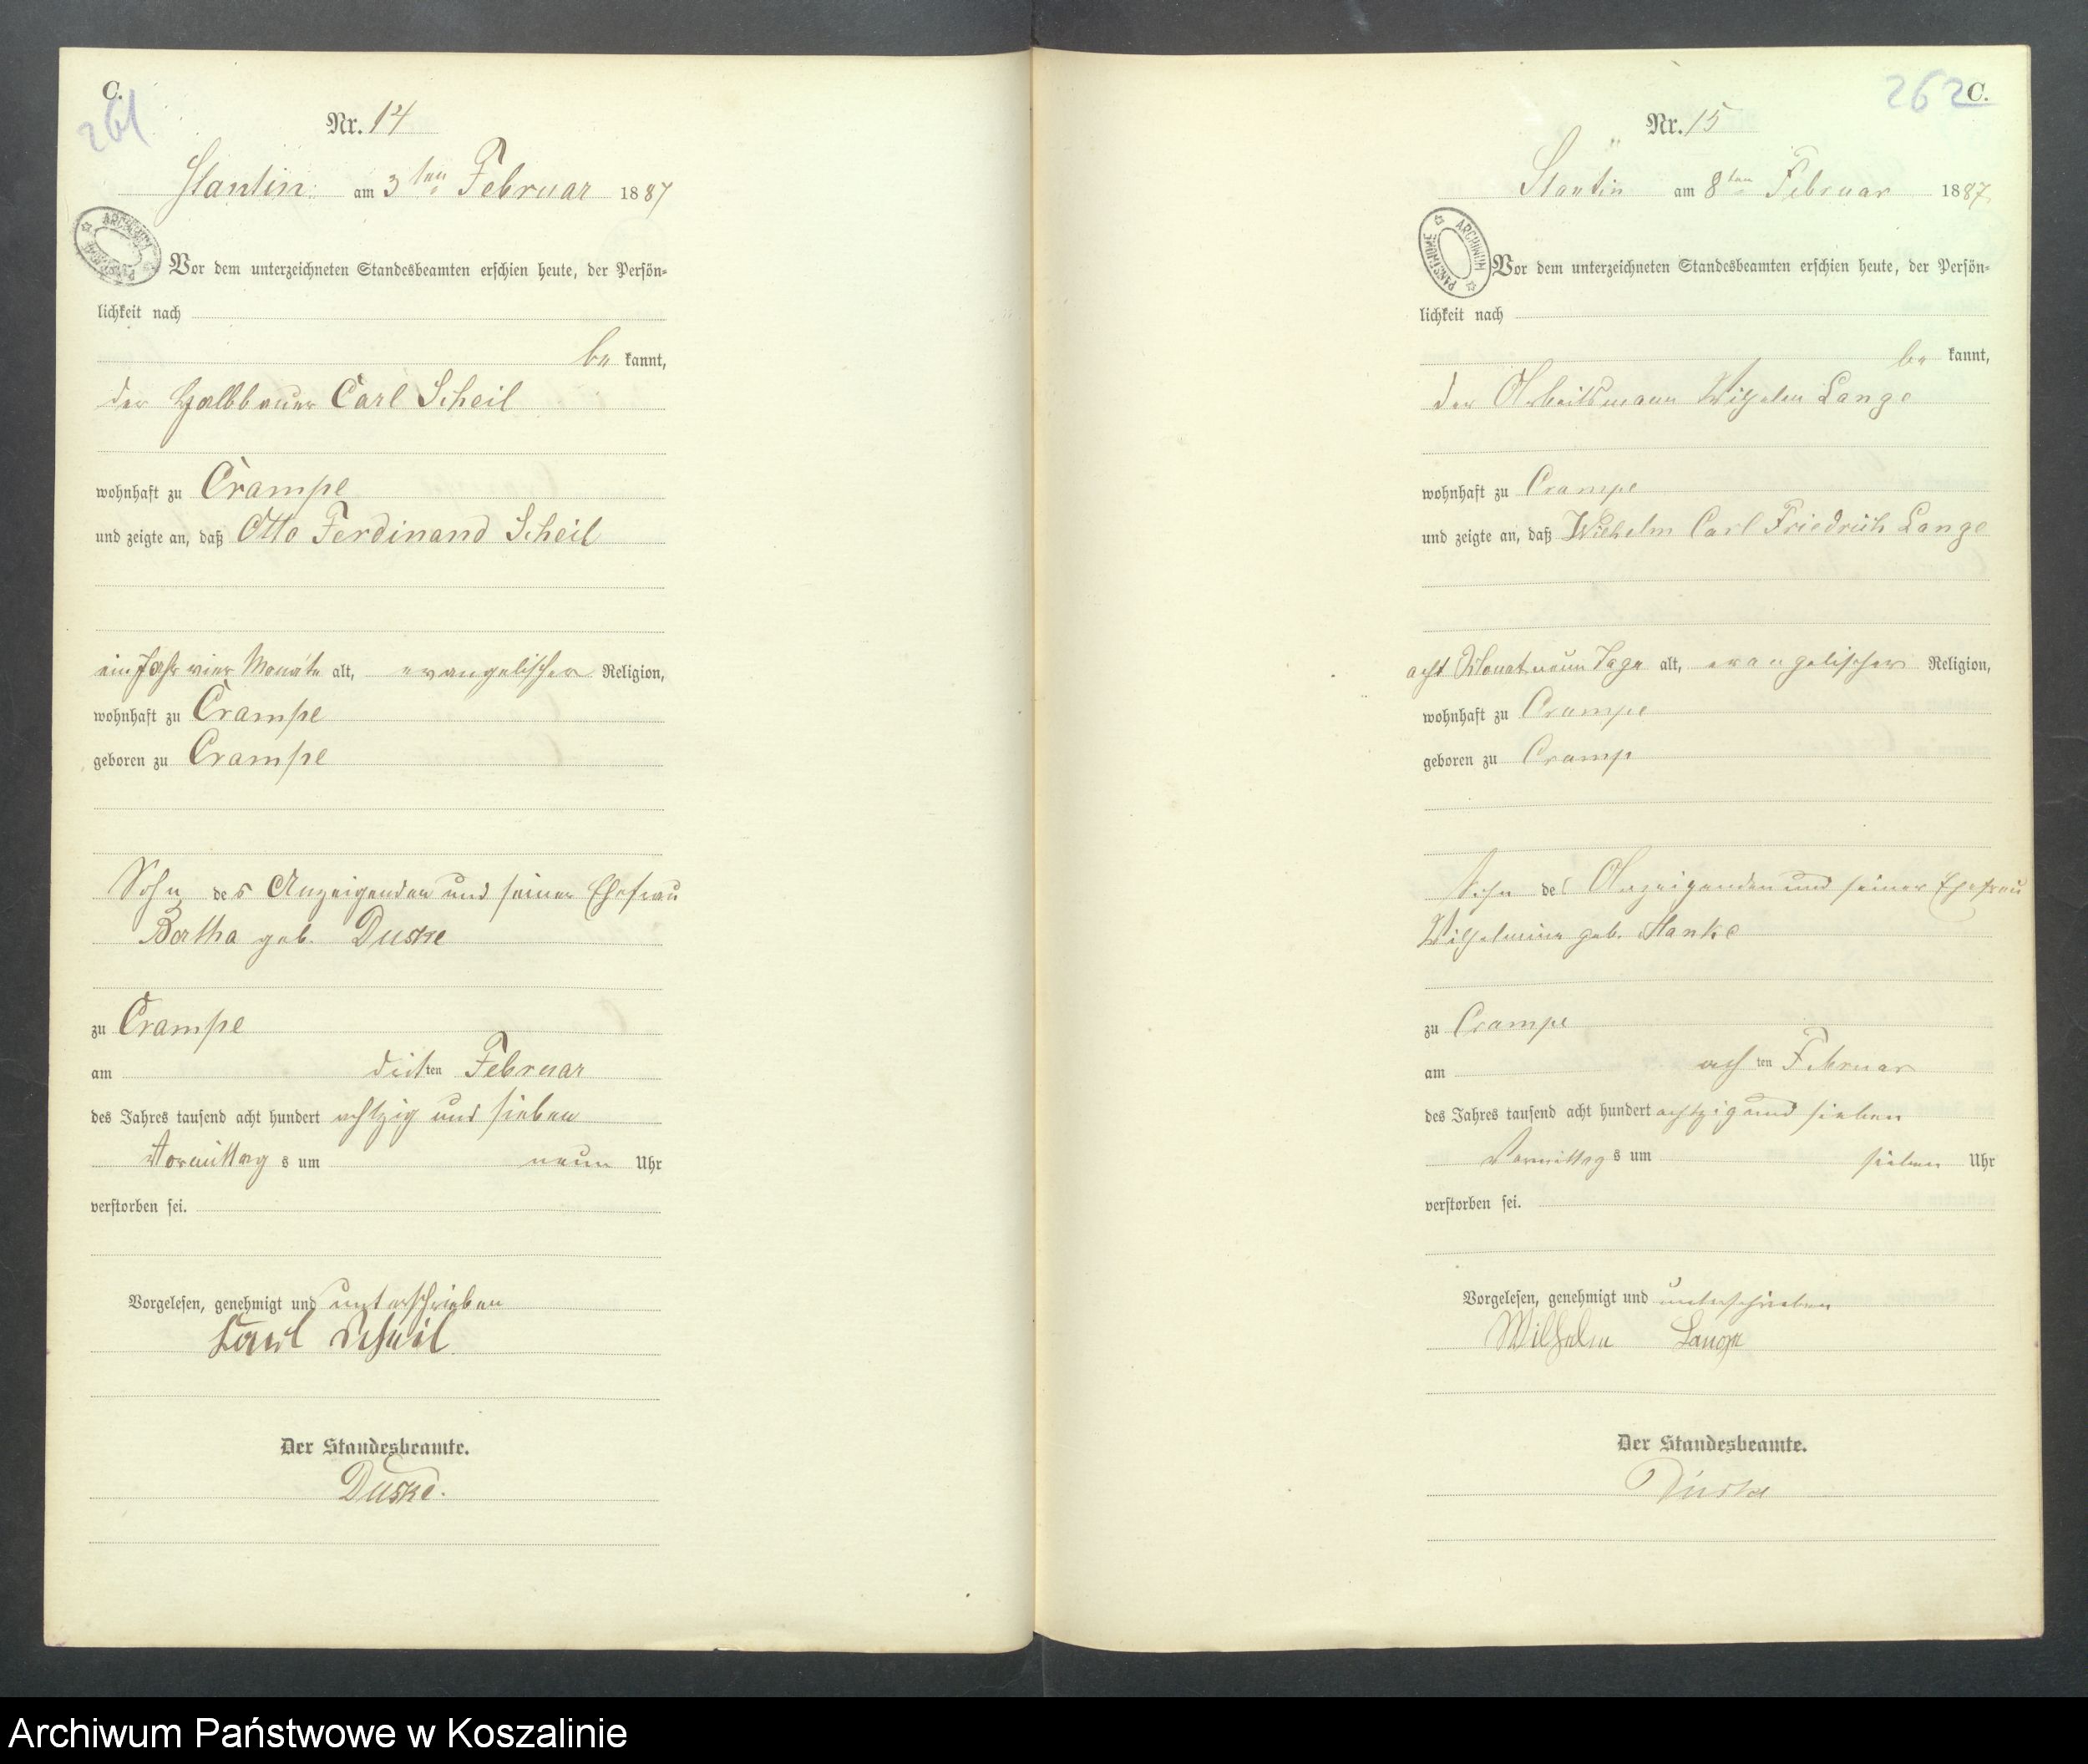 C.
261
Nr. 14
Stantin am 3ten Februar 1887
ARCHIWUM PAŃSTWOWE
Vor dem unterzeichneten Standesbeamten erschien heute, der Persön-
lichkeit nach
be kannt,
der Halbbauer Carl Scheil
wohnhaft zu Crampe
und zeigte an, daß Otto Ferdinand Scheil
ein Jahr vier Monate alt, evangelischer Religion,
wohnhaft zu Crampe
geboren zu Crampe
Sohn des Anzeigenden und seiner Ehefrau
Bertha geb. Duske
zu Crampe
am ten Februar
des Jahres tausend acht hundert achtzig und sieben
Vormittag s um neun Uhr
verstorben sei.
Vorgelesen, genehmigt und unterschrieben
Carl Scheil
Der Standesbeamte.
Duske.
262
C.
Nr. 15
Stantin am 8ten Februar 1887
ARCHIWUM PAŃSTWOWE
Vor dem unterzeichneten Standesbeamten erschien heute, der Persön-
lichkeit nach
be kannt,
der Arbeitsmann Wilhelm Lange
wohnhaft zu Crampe
und zeigte an, daß Wilhelm Carl Friedrich Lange
acht Monat neun Tage alt, evangelischer Religion,
wohnhaft zu Crampe
geboren zu Cramp
Sohn des Anzeigenden und seiner Ehefrau
Wilhelmine geb. Hanke
zu Crampe
am ach ten Februar
des Jahres tausend acht hundert achtzig und sieben
Vormittag s um sieben Uhr
verstorben sei.
Vorgelesen, genehmigt und unterschrieben
Wilhelm Lange
Der Standesbeamte.
Duske
Archiwum Państwowe w Koszalinie